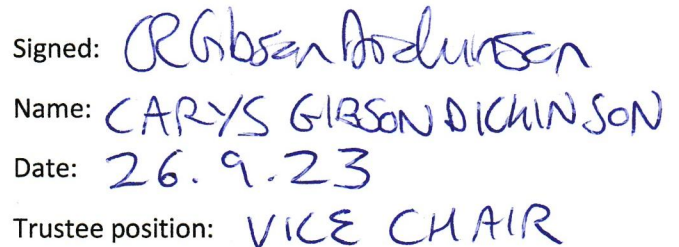 Signed: CR Gibson Dickinson
Name: CARYS GIBSON DICKINSON
Date: 26.9.23
Trustee position: VICE CHAIR